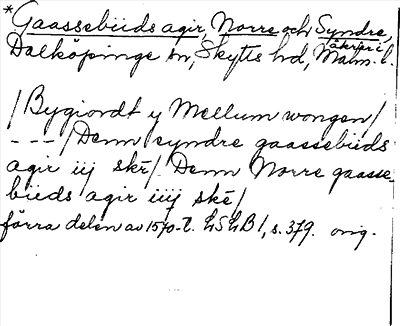 *Gaassebieds agir, Norre och Syndre,
åkrar i
Dalköpinge sn, Skytts hd, Malm. l.
/Bygiordt y Mellum wongen/
---/Denn syndre gaassebieds
agir iij skē/ Denn Norre gaasse-
bieds agir iiij skē/
förra delen av 1570-t. LSLB 1, s. 379. orig.